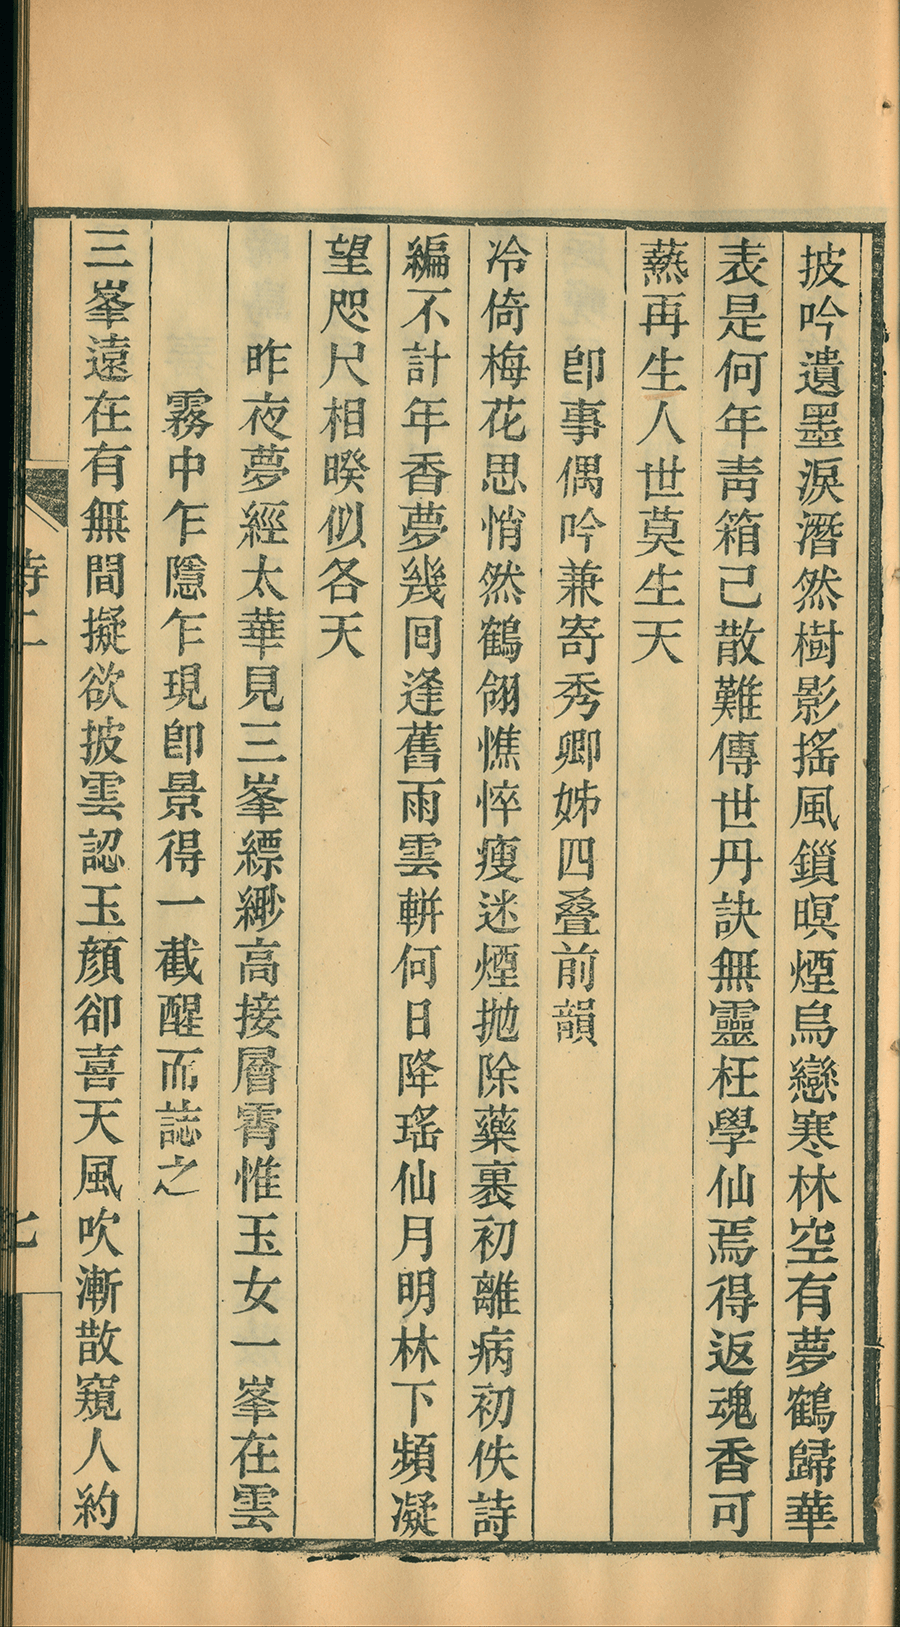 披吟遺墨淚潛然樹影搖風鎖暝煙烏戀寒林空有夢鶴歸華
表是何年靑箱己散難傳世丹訣無靈枉學仙焉得返魂香可
爇再生人世莫生天
卽事偶吟兼寄秀卿姊四叠前韻
冷倚梅花思悄然鶴翎憔悴瘦迷煙拋除藥裹初離病初佚詩
編不計年香夢幾囘逢舊雨雲輧何日降瑤仙月明林下頻凝
望咫尺相暌似各天
昨夜夢經太華見三峯縹緲高接層霄惟玉女一峯在雲
霧中乍隱乍現卽景得一截醒而誌之
三峯遠在有無間擬欲披雲認玉顏卻喜天風吹漸散窺人約
詩二
七